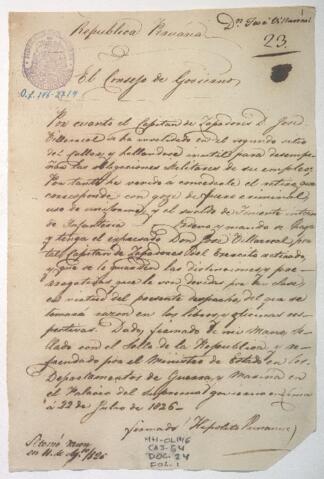 Dn. José Villarreal
Republica Peruana
23.
O.L. 146-2719
El Consejo de Govierno
Por cuanto el Capitan de Zapadores D. José
Villarreal se ha inutilizado en el segundo sitio
del Callao, y hallandose inutil para desempe-
ñar las obligaciones Militares de su empleo;
Por tanto he venido a concederle el retiro que
corresponde con goze de fuero criminal
uso de uniforme, y el sueldo de Teniente
de Infanteria Ordeno y mando se haya
y tenga el expresado Don José Villarreal por
tal Capitan de Zapadores del Exercito retirado,
y que se le guarden las distinciones y pre-
rogativas que le son devidas por su clase
en virtud del presente despacho, del que se
tomará razon en los libros y oficinas res-
pectivas. Dado, firmado de mi Mano, se-
llado con el Sello de la Republica y re-
frendado por el Ministro de Estado en los
Departamentos de Guerra y Marina en el
Palacio del Supremo govierno en Lima
á 22 de Julio de 1826—
firmado Hipolito Unanue
Se tomó razon
en 11. de Agto. 1826
MH-OL146
CAJ-54
DOC-24
FOL-1